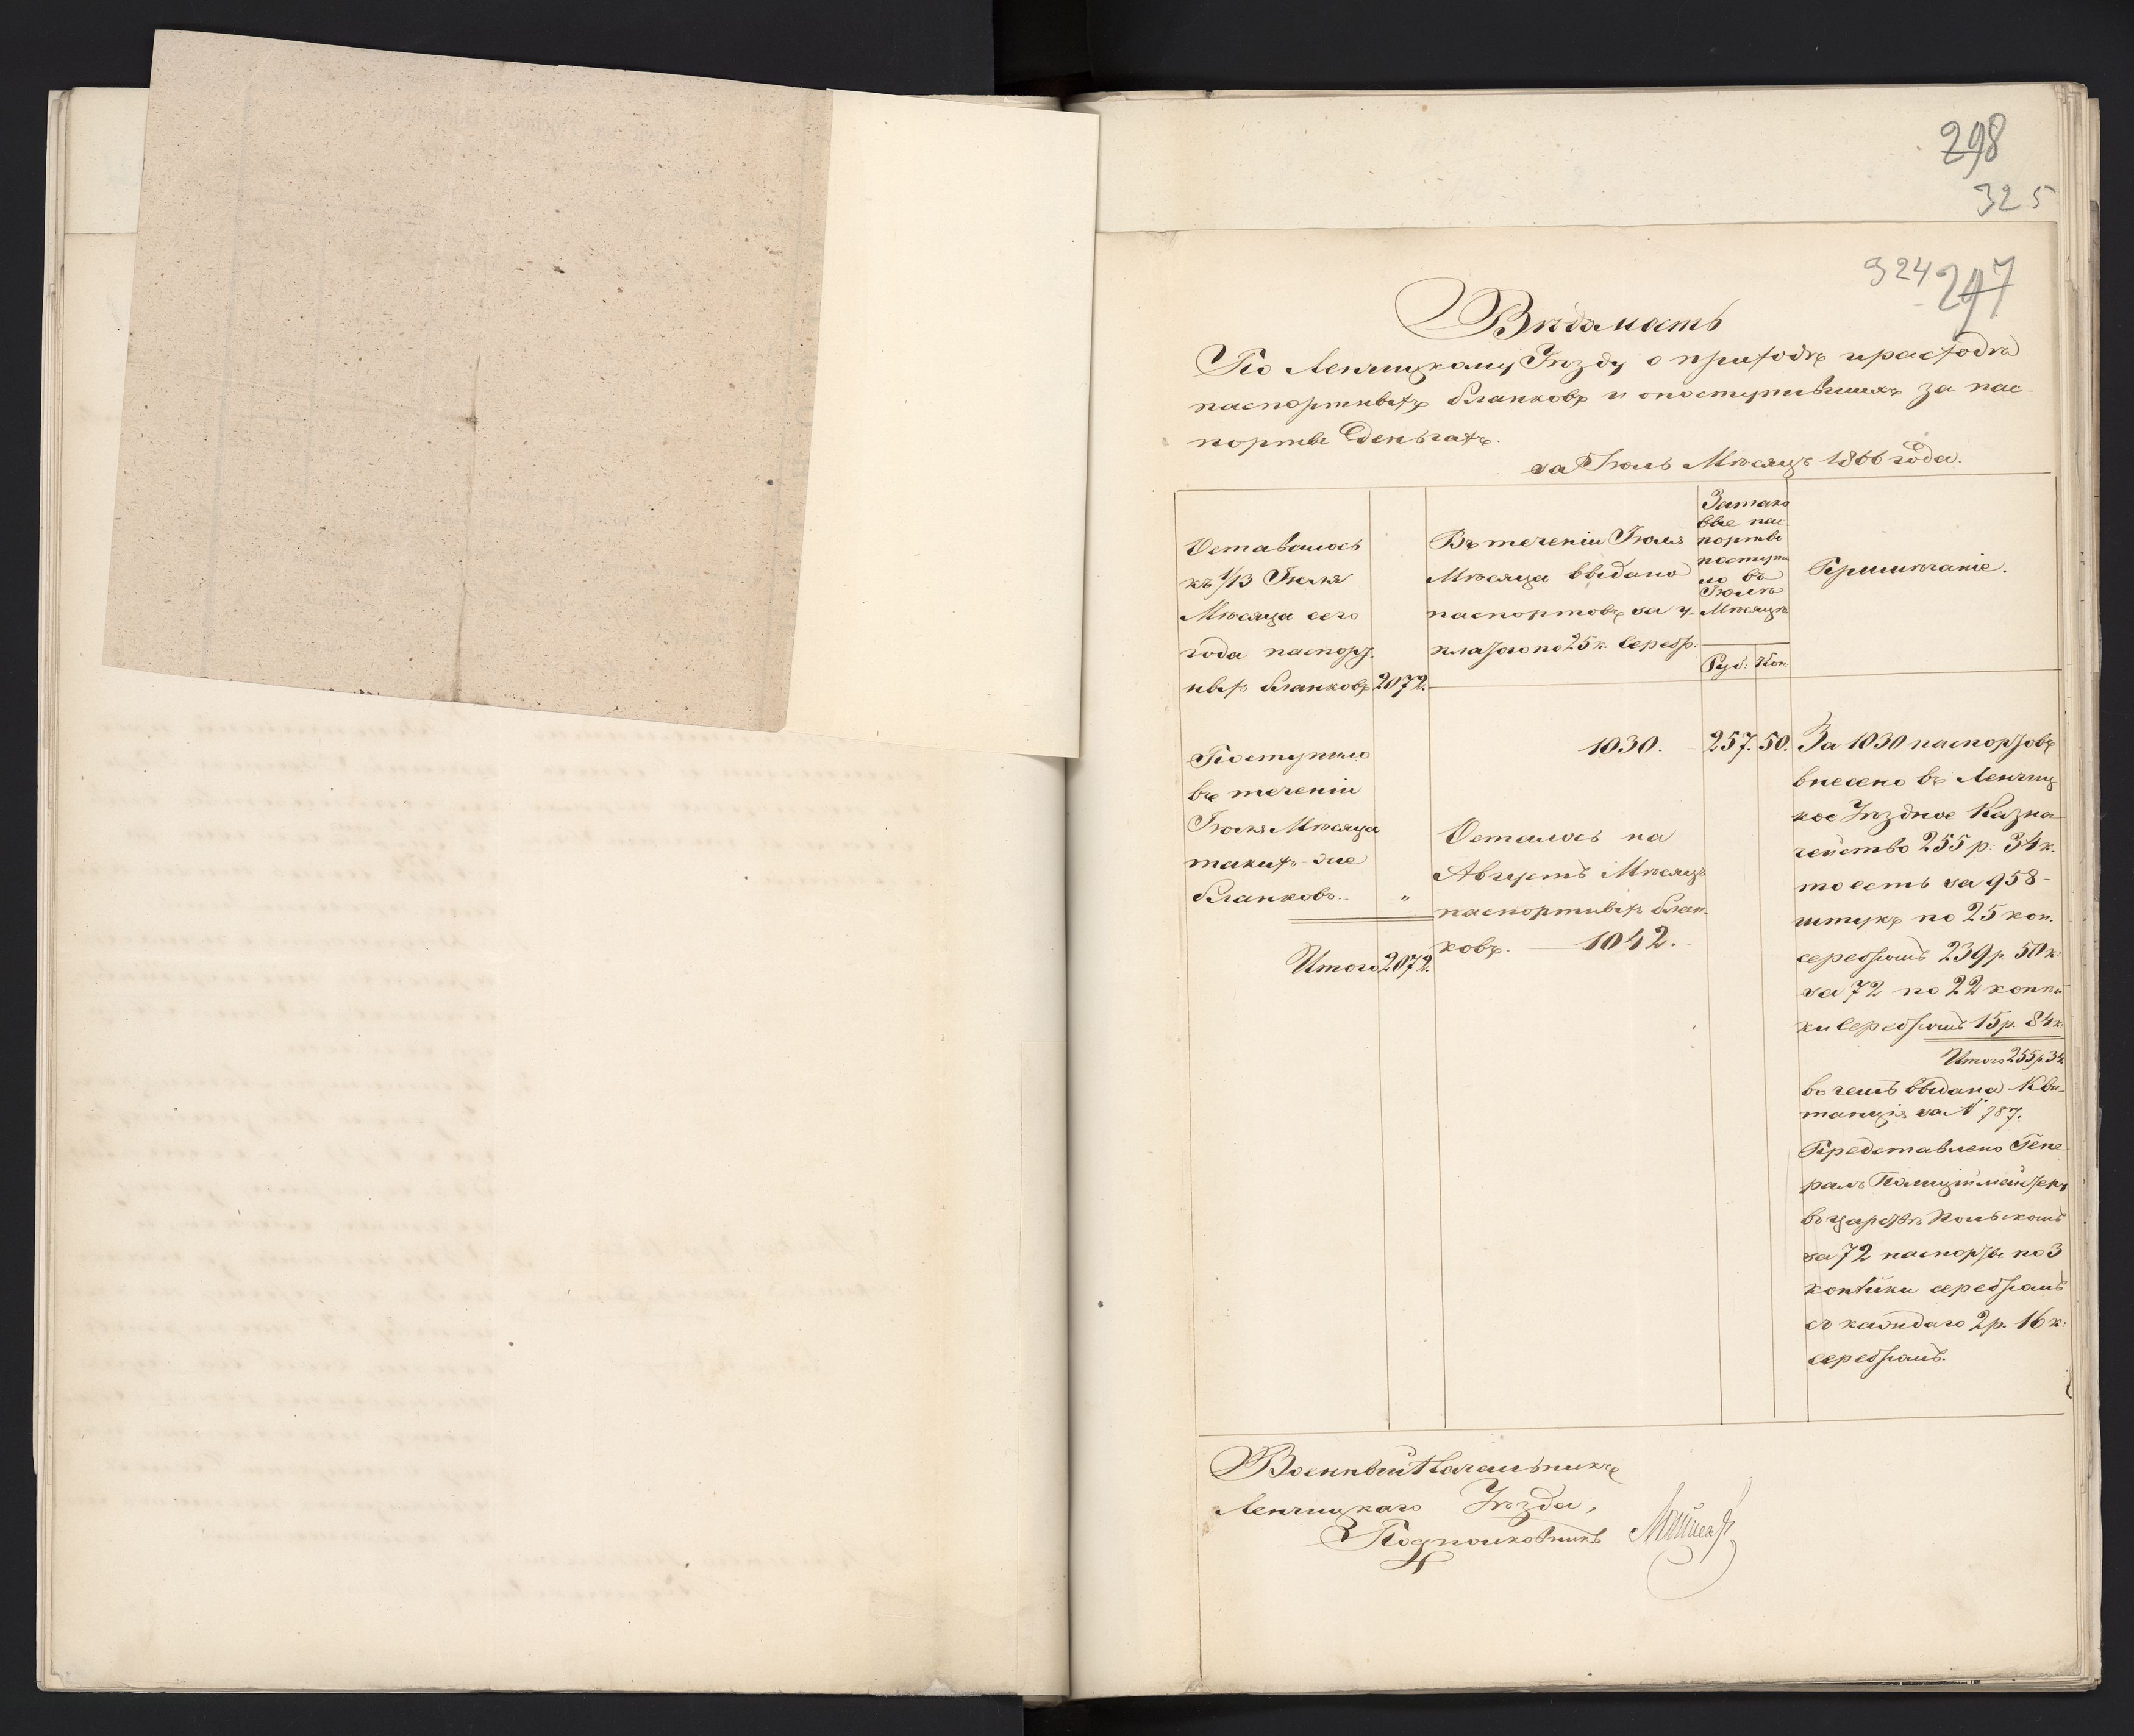 298
325
324 297
Вѣдомость
По Ленчицкому Уѣзду о приходѣ и расходѣ
паспортныхъ бланковъ и о поступившихъ за пас-
порты деньгахъ.
за Іюль Мѣсяцъ 1866 года.
Оставалось
къ 1/13 Іюля
Мѣсяца сего
года паспорт-
ныхъ бланковъ 2072.
Поступило
въ теченіи
Іюля Мѣсяца
такихъ-же
бланковъ.. "
Итого 2072.
Въ теченіи Іюля
Мѣсяца выдано
паспортовъ за у-
платою по 25 к. серебр:
1030.
Осталось на
Августъ Мѣсяцъ
паспортныхъ блан-
ковъ. — 1042.
За тако
вые пас-
порты
поступи
ло въ
Іюлѣ
Мѣсяцѣ
Руб: Коп.
257. 50.
Примѣчаніе.
За 1030 паспортовъ
внесено въ Ленчиц
кое Уѣздное Казна-
чейство 255 р: 34 к.
то есть за 958-
штукъ по 25 коп.
серебромъ 239 р. 50 к:
за 72 по 22 копѣй
ки серебромъ 15 р. 84 к.
Итого 255 р. 34
въ чемъ выдана Кви-
танція за № 787.
Представлено Гене-
ралъ Полицiймейстеру
въ царствѣ Польскомъ
за 72 паспорты по 3
копѣйки серебромъ
съ каждаго 2 р. 16 к:
серебромъ.
Военный Начальникъ
Ленчицкаго Уѣзда,
Подполковникъ